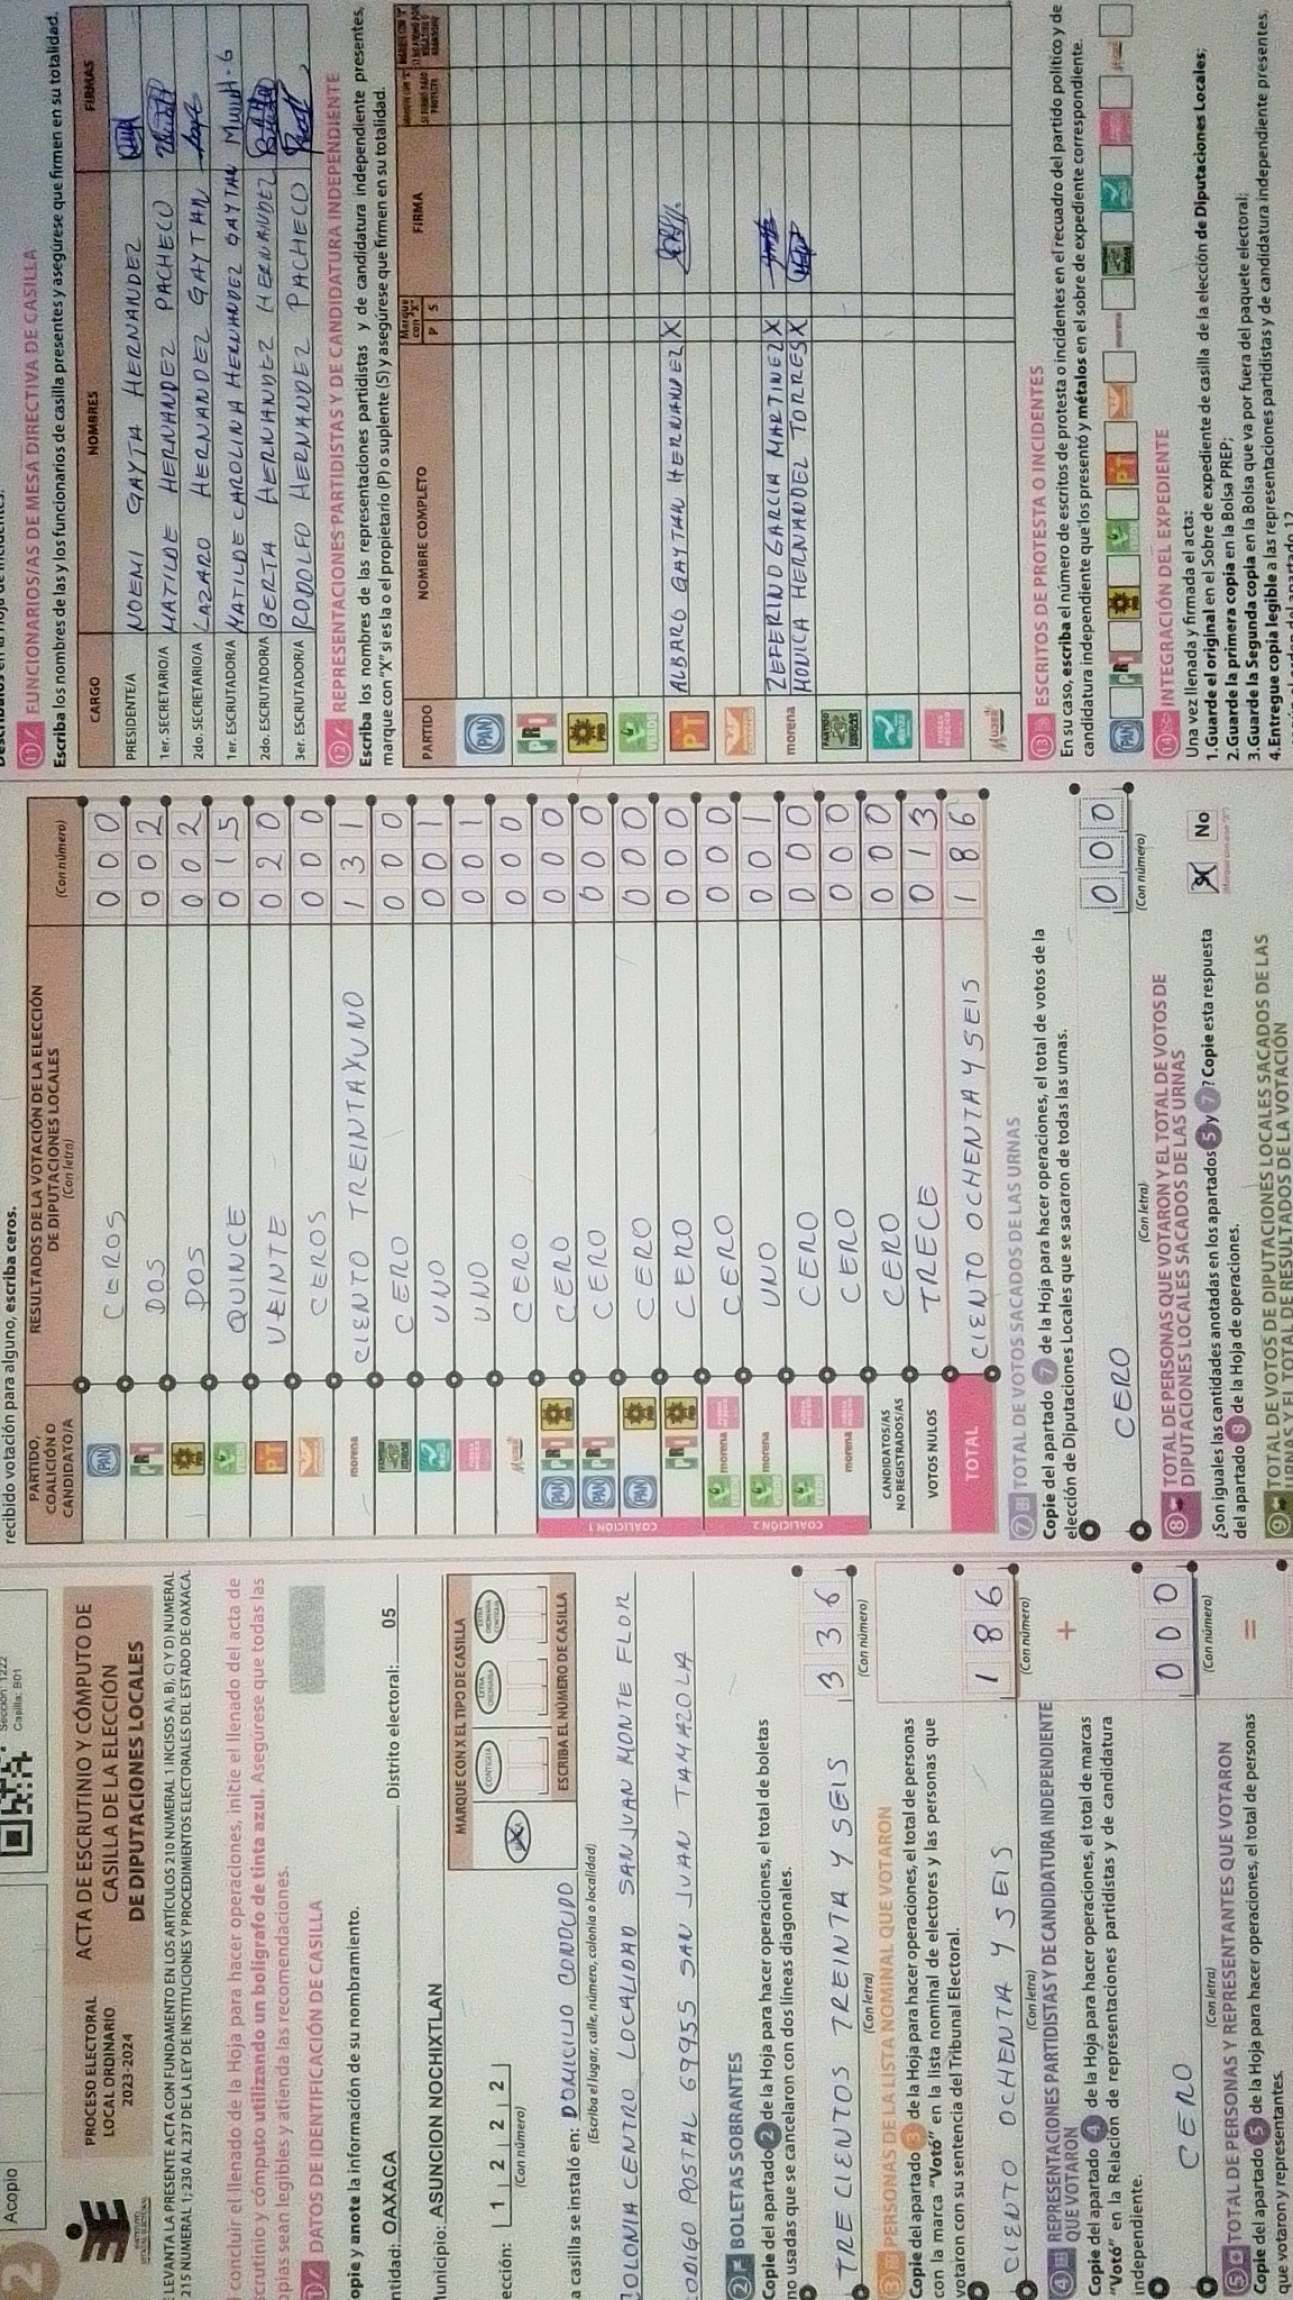 2
Acopio
Sección: 1222
Casilla: B01
PROCESO ELECTORAL
LOCAL ORDINARIO
2023-2024
ACTA DE ESCRUTINIO Y CÓMPUTO DE
CASILLA DE LA ELECCIÓN
DE DIPUTACIONES LOCALES
LEVANTA LA PRESENTE ACTA CON FUNDAMENTO EN LOS ARTÍCULOS 210 NUMERAL 1 INCISOS A), B), C) Y D) NUMERAL
215 NUMERAL 1; 230 AL 237 DE LA LEY DE INSTITUCIONES Y PROCEDIMIENTOS ELECTORALES DEL ESTADO DE OAXACA.
concluir el llenado de la Hoja para hacer operaciones, inicie el llenado del acta de
scrutinio y cómputo utilizando un bolígrafo de tinta azul. Asegúrese que todas las
opias sean legibles y atienda las recomendaciones.
1 DATOS DE IDENTIFICACIÓN DE CASILLA
opie y anote la información de su nombramiento.
ntidad: OAXACA Distrito electoral: 05
Municipio: ASUNCION NOCHIXTLAN
ección: 1 2 2 2
(Con número)
MARQUE CON X EL TIPO DE CASILLA
CONTIGUA
EXTRA ORDINARIA
EXTRA ORDINARIA CONTIGUA
ESCRIBA EL NÚMERO DE CASILLA
a casilla se instaló en: DOMICILIO CONOCIDO
(Escriba el lugar, calle, número, colonia o localidad)
COLONIA CENTRO LOCALIDAD SAN JUAN MONTE FLOR
CODIGO POSTAL 69955 SAN JUAN TAMAZOLA
2 BOLETAS SOBRANTES
Copie del apartado 2 de la Hoja para hacer operaciones, el total de boletas
no usadas que se cancelaron con dos líneas diagonales.
TRE CIENTOS TREINTA Y SEIS 3 3 6
(Con letra) (Con número)
3 PERSONAS DE LA LISTA NOMINAL QUE VOTARON
Copie del apartado 3 de la Hoja para hacer operaciones, el total de personas
con la marca "Votó" en la lista nominal de electores y las personas que
votaron con su sentencia del Tribunal Electoral.
CIENTO OCHENTA Y SEIS 1 8 6
(Con letra) (Con número)
4 REPRESENTACIONES PARTIDISTAS Y DE CANDIDATURA INDEPENDIENTE
QUE VOTARON
+
Copie del apartado 4 de la Hoja para hacer operaciones, el total de marcas
"Votó" en la Relación de representaciones partidistas y de candidatura
independiente.
CERO 0 0 0
(Con letra) (Con número)
5 TOTAL DE PERSONAS Y REPRESENTANTES QUE VOTARON
=
Copie del apartado 5 de la Hoja para hacer operaciones, el total de personas
que votaron y representantes.
recibido votación para alguno, escriba ceros.
PARTIDO,
COALICIÓN O
CANDIDATO/A
RESULTADOS DE LA VOTACIÓN DE LA ELECCIÓN
DE DIPUTACIONES LOCALES
(Con letra)
(Con número)
PAN CEROS 0 0 0
PRI DOS 0 0 2
PRD DOS 0 0 2
VERDE QUINCE 0 1 5
PT VEINTE 0 2 0
CEROS 0 0 0
morena CIENTO TREINTAYUNO 1 3 1
CERO 0 0 0
UNO 0 0 1
UNO 0 0 1
CERO 0 0 0
COALICIÓN 1
PAN PRI PRD CERO 0 0 0
PAN PRI CERO 0 0 0
PAN PRD CERO 0 0 0
PRI PRD CERO 0 0 0
COALICIÓN 2
VERDE morena CERO 0 0 0
VERDE morena UNO 0 0 1
VERDE CERO 0 0 0
morena CERO 0 0 0
CANDIDATOS/AS
NO REGISTRADOS/AS CERO 0 0 0
VOTOS NULOS TRECE 0 1 3
TOTAL CIENTO OCHENTA Y SEIS 1 8 6
7 TOTAL DE VOTOS SACADOS DE LAS URNAS
Copie del apartado 7 de la Hoja para hacer operaciones, el total de votos de la
elección de Diputaciones Locales que se sacaron de todas las urnas.
CERO 0 0 0
(Con letra) (Con número)
8 TOTAL DE PERSONAS QUE VOTARON Y EL TOTAL DE VOTOS DE
DIPUTACIONES LOCALES SACADOS DE LAS URNAS
¿Son iguales las cantidades anotadas en los apartados 5 y 7? Copie esta respuesta
del apartado 8 de la Hoja de operaciones.
No
9 TOTAL DE VOTOS DE DIPUTACIONES LOCALES SACADOS DE LAS
URNAS Y EL TOTAL DE RESULTADOS DE LA VOTACIÓN
11 FUNCIONARIOS/AS DE MESA DIRECTIVA DE CASILLA
Escriba los nombres de las y los funcionarios de casilla presentes y asegúrese que firmen en su totalidad.
CARGO NOMBRES FIRMAS
PRESIDENTE/A NOEMI GAYTA HERNANDEZ
1er. SECRETARIO/A MATILDE HERNANDEZ PACHECO
2do. SECRETARIO/A LAZARO HERNANDEZ GAYTAN
1er. ESCRUTADOR/A MATILDE CAROLINA HERNANDEZ GAYTAN
2do. ESCRUTADOR/A BERTA HERNANDEZ HERNANDEZ
3er. ESCRUTADOR/A RODOLFO HERNANDEZ PACHECO
12 REPRESENTACIONES PARTIDISTAS Y DE CANDIDATURA INDEPENDIENTE
Escriba los nombres de las representaciones partidistas y de candidatura independiente presentes,
marque con "X" si es la o el propietario (P) o suplente (S) y asegúrese que firmen en su totalidad.
PARTIDO NOMBRE COMPLETO Marque con "X" P S FIRMA
PAN
PRI
PRD
VERDE
PT ALBARO GAYTAN HERNANDEZ X
morena ZEFERINO GARCIA MARTINEZ X
MONICA HERNANDEL TORRES X
13 ESCRITOS DE PROTESTA O INCIDENTES
En su caso, escriba el número de escritos de protesta o incidentes en el recuadro del partido político y de
candidatura independiente que los presentó y métalos en el sobre de expediente correspondiente.
PAN PRI PRD VERDE PT morena
14 INTEGRACIÓN DEL EXPEDIENTE
Una vez llenada y firmada el acta:
1. Guarde el original en el Sobre de expediente de casilla de la elección de Diputaciones Locales;
2. Guarde la primera copia en la Bolsa PREP;
3. Guarde la Segunda copia en la Bolsa que va por fuera del paquete electoral;
4. Entregue copia legible a las representaciones partidistas y de candidatura independiente presentes,